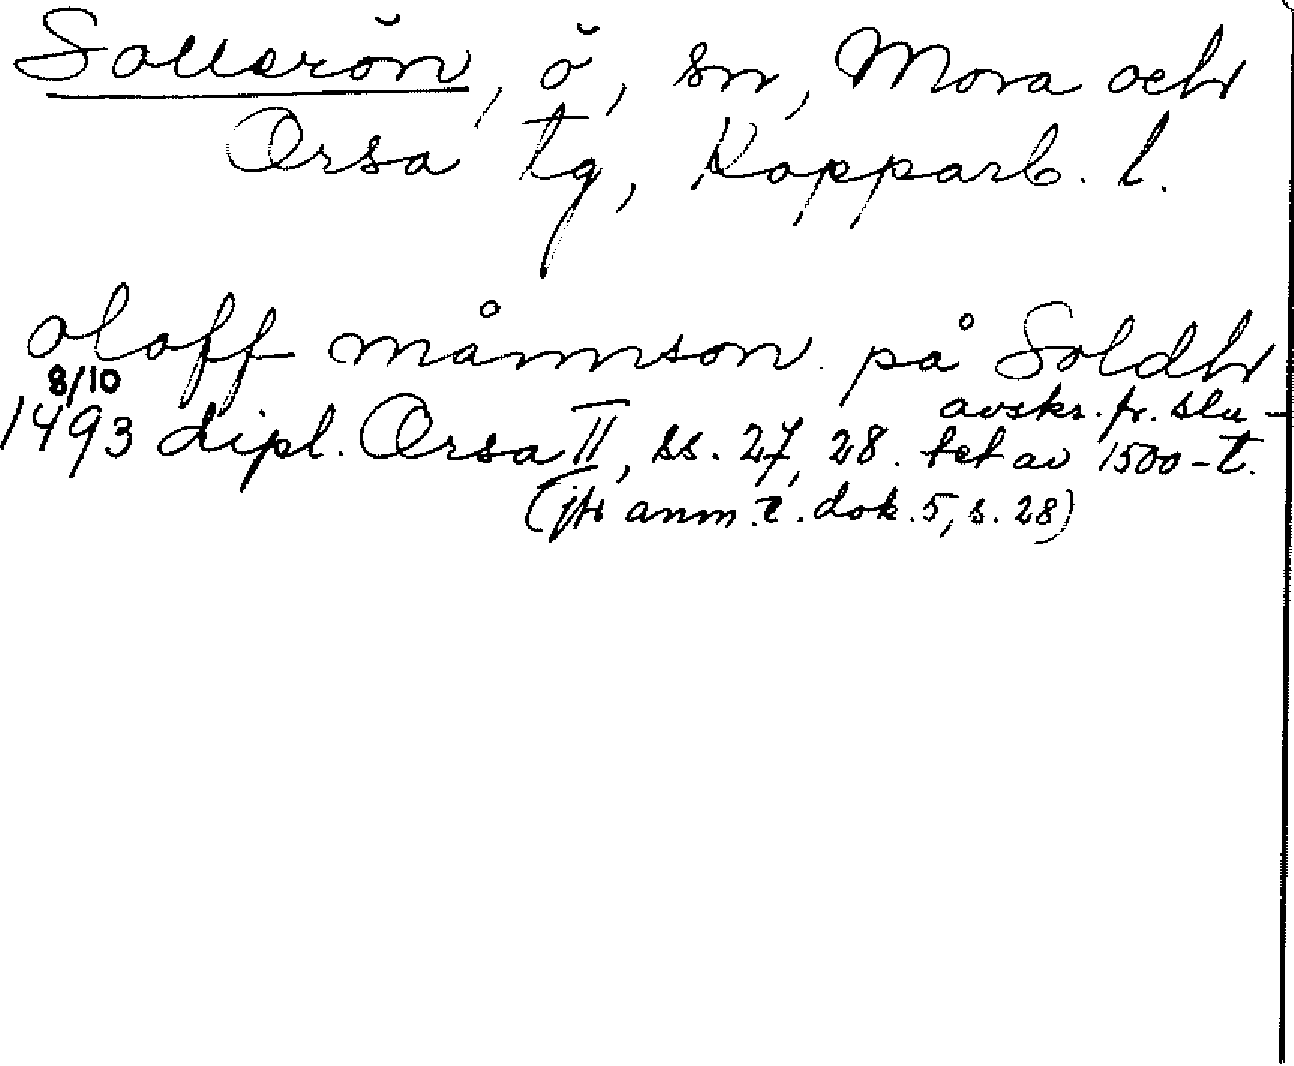 Sollerön, ö, sn, Mora och
Orsa tg, Kopparb. l.
oloff månnson på Soldh
8/10
1493 dipl. Orsa II, ss. 27, 28. avskr. fr. slu-
tet av 1500-t.
(jfr anm. t. dok. 5, s. 28)